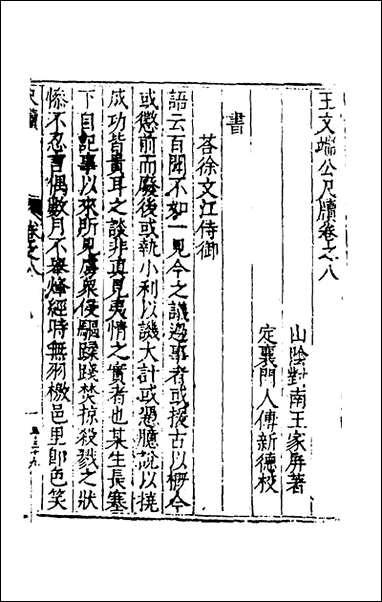 王文端公尺牘卷之八
山陰對南王家屏著
定襄門人傅新德校
書
荅徐文江侍御
語云百聞不如一見今之議邊事者或援古以槩今
或懲前而廢後或執小利以譏大計或憑臆說以撓
成功皆貴耳之談非真見夷情之實者也某生長塞
下自記事以來所見虜衆侵驅蹂踐焚掠殺戮之狀
慘不忍言偶數月不舉烽經時無羽檄邑里郎色笑
尺牘
卷之八
一